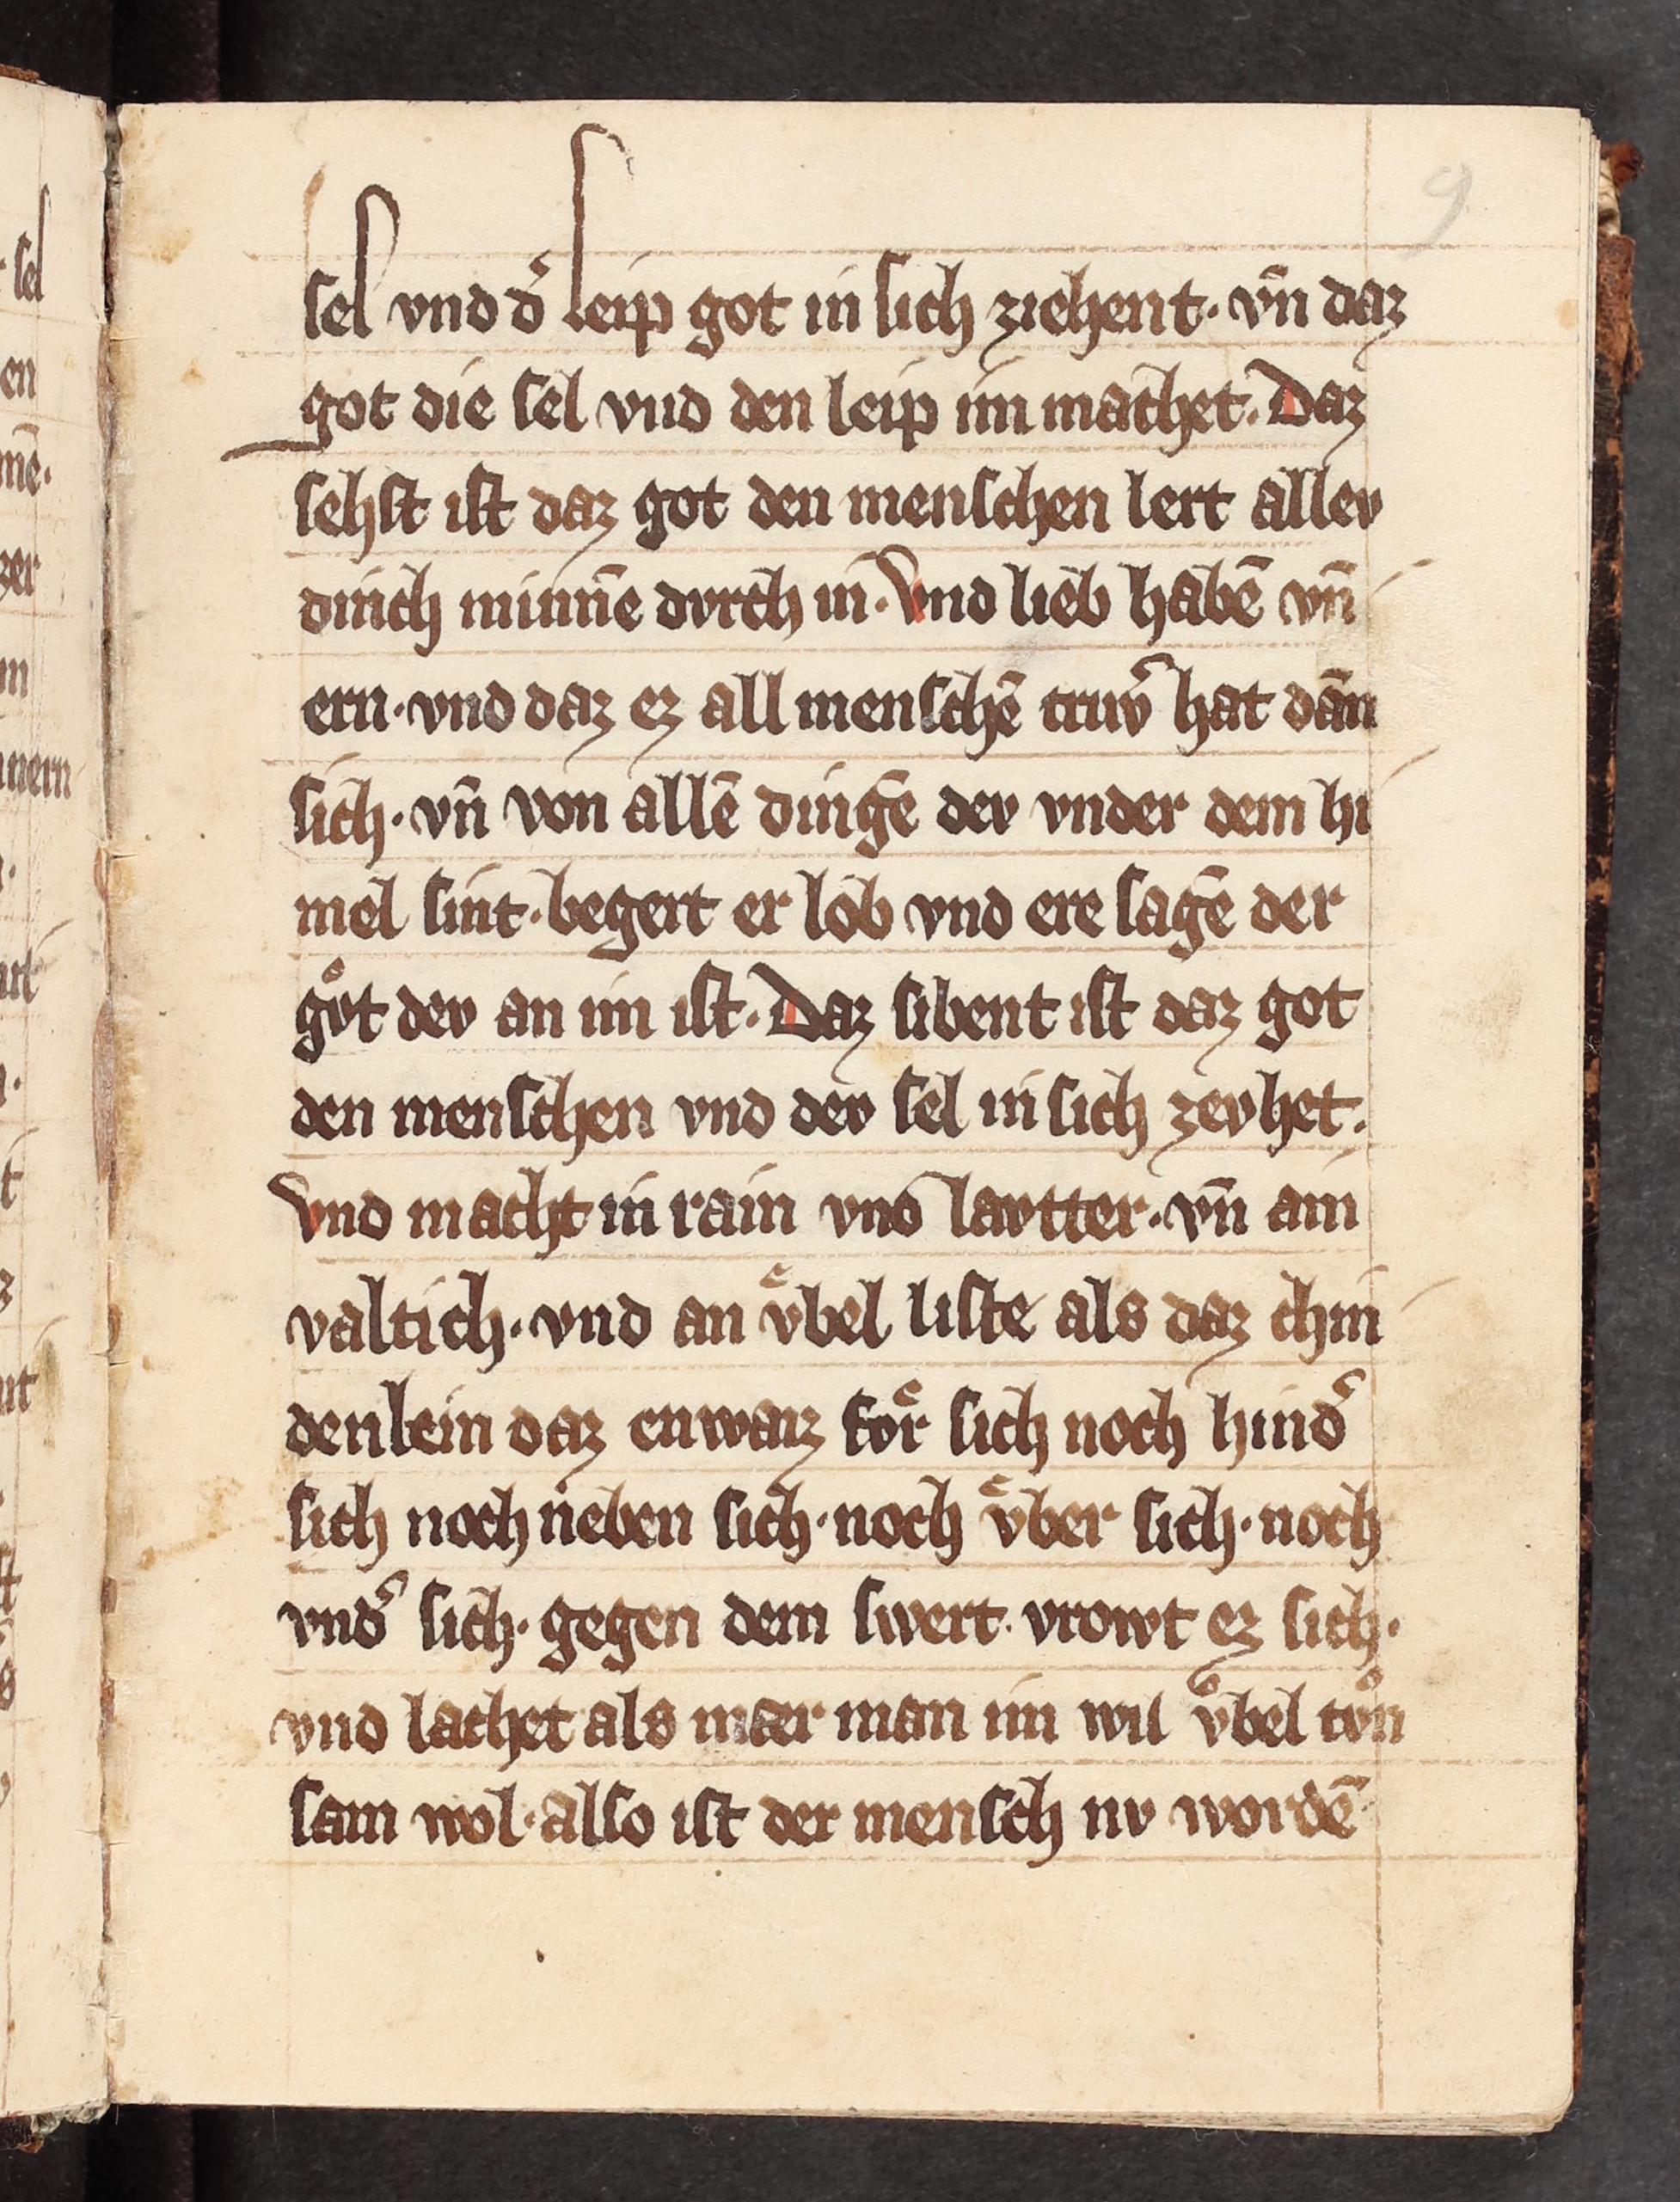 9
sel vnd d̾ leip got in sich ziehent · vn̄ daz
got die sel vnd den leip im machet · Daz
sehst ist daz got den menschen lert allev
dinch minnē dvrch in · Vnd lieb habē vn̄
ern · vnd daz ez all menschē truw̾ hat dān
sich · vn̄ von allē dingē dev vnder dem hi
mel sint · begert er lob vnd ere sagē der
gvͦt dev an im ist · Daz sibent ist daz got
den menschen vnd dev sel in sich zevhet ·
Vnd macht in rain vnd lavtter · vn̄ ain
valtich · vnd an vͤbel liste als daz chin
denlein daz enwaiz fvͤr sich noch hind̾
sich noch neben sich · noch vͤber sich · noch
vnd̾ sich · gegen dem swert · vrowt ez sich ·
vnd lachet als mær man im wil vͤbel tvͦn
sam wol · also ist der mensch nv wordē